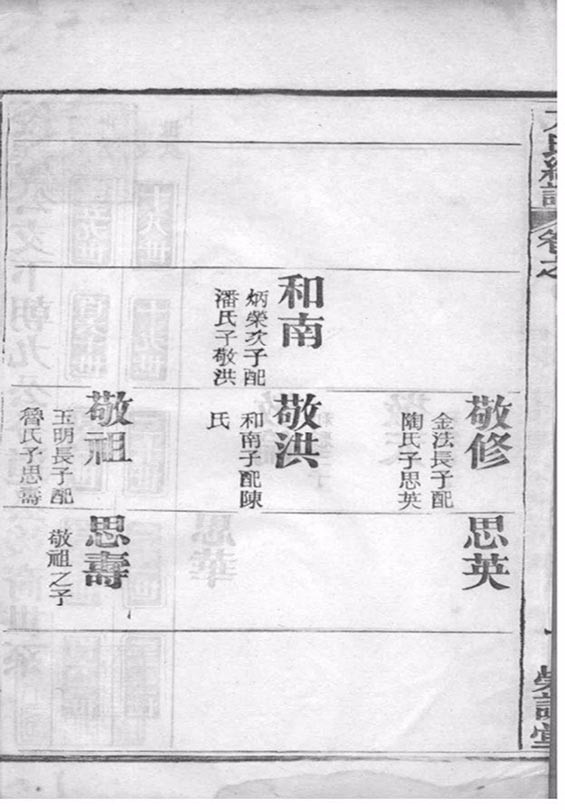 卷之
和南
炳榮次子配
潘氏子敬洪
敬修
金法長子配
陶氏子思英
敬洪
和南子配陳
氏
敬祖
玉明長子配
魯氏子思壽
思英
思壽
敬祖之子